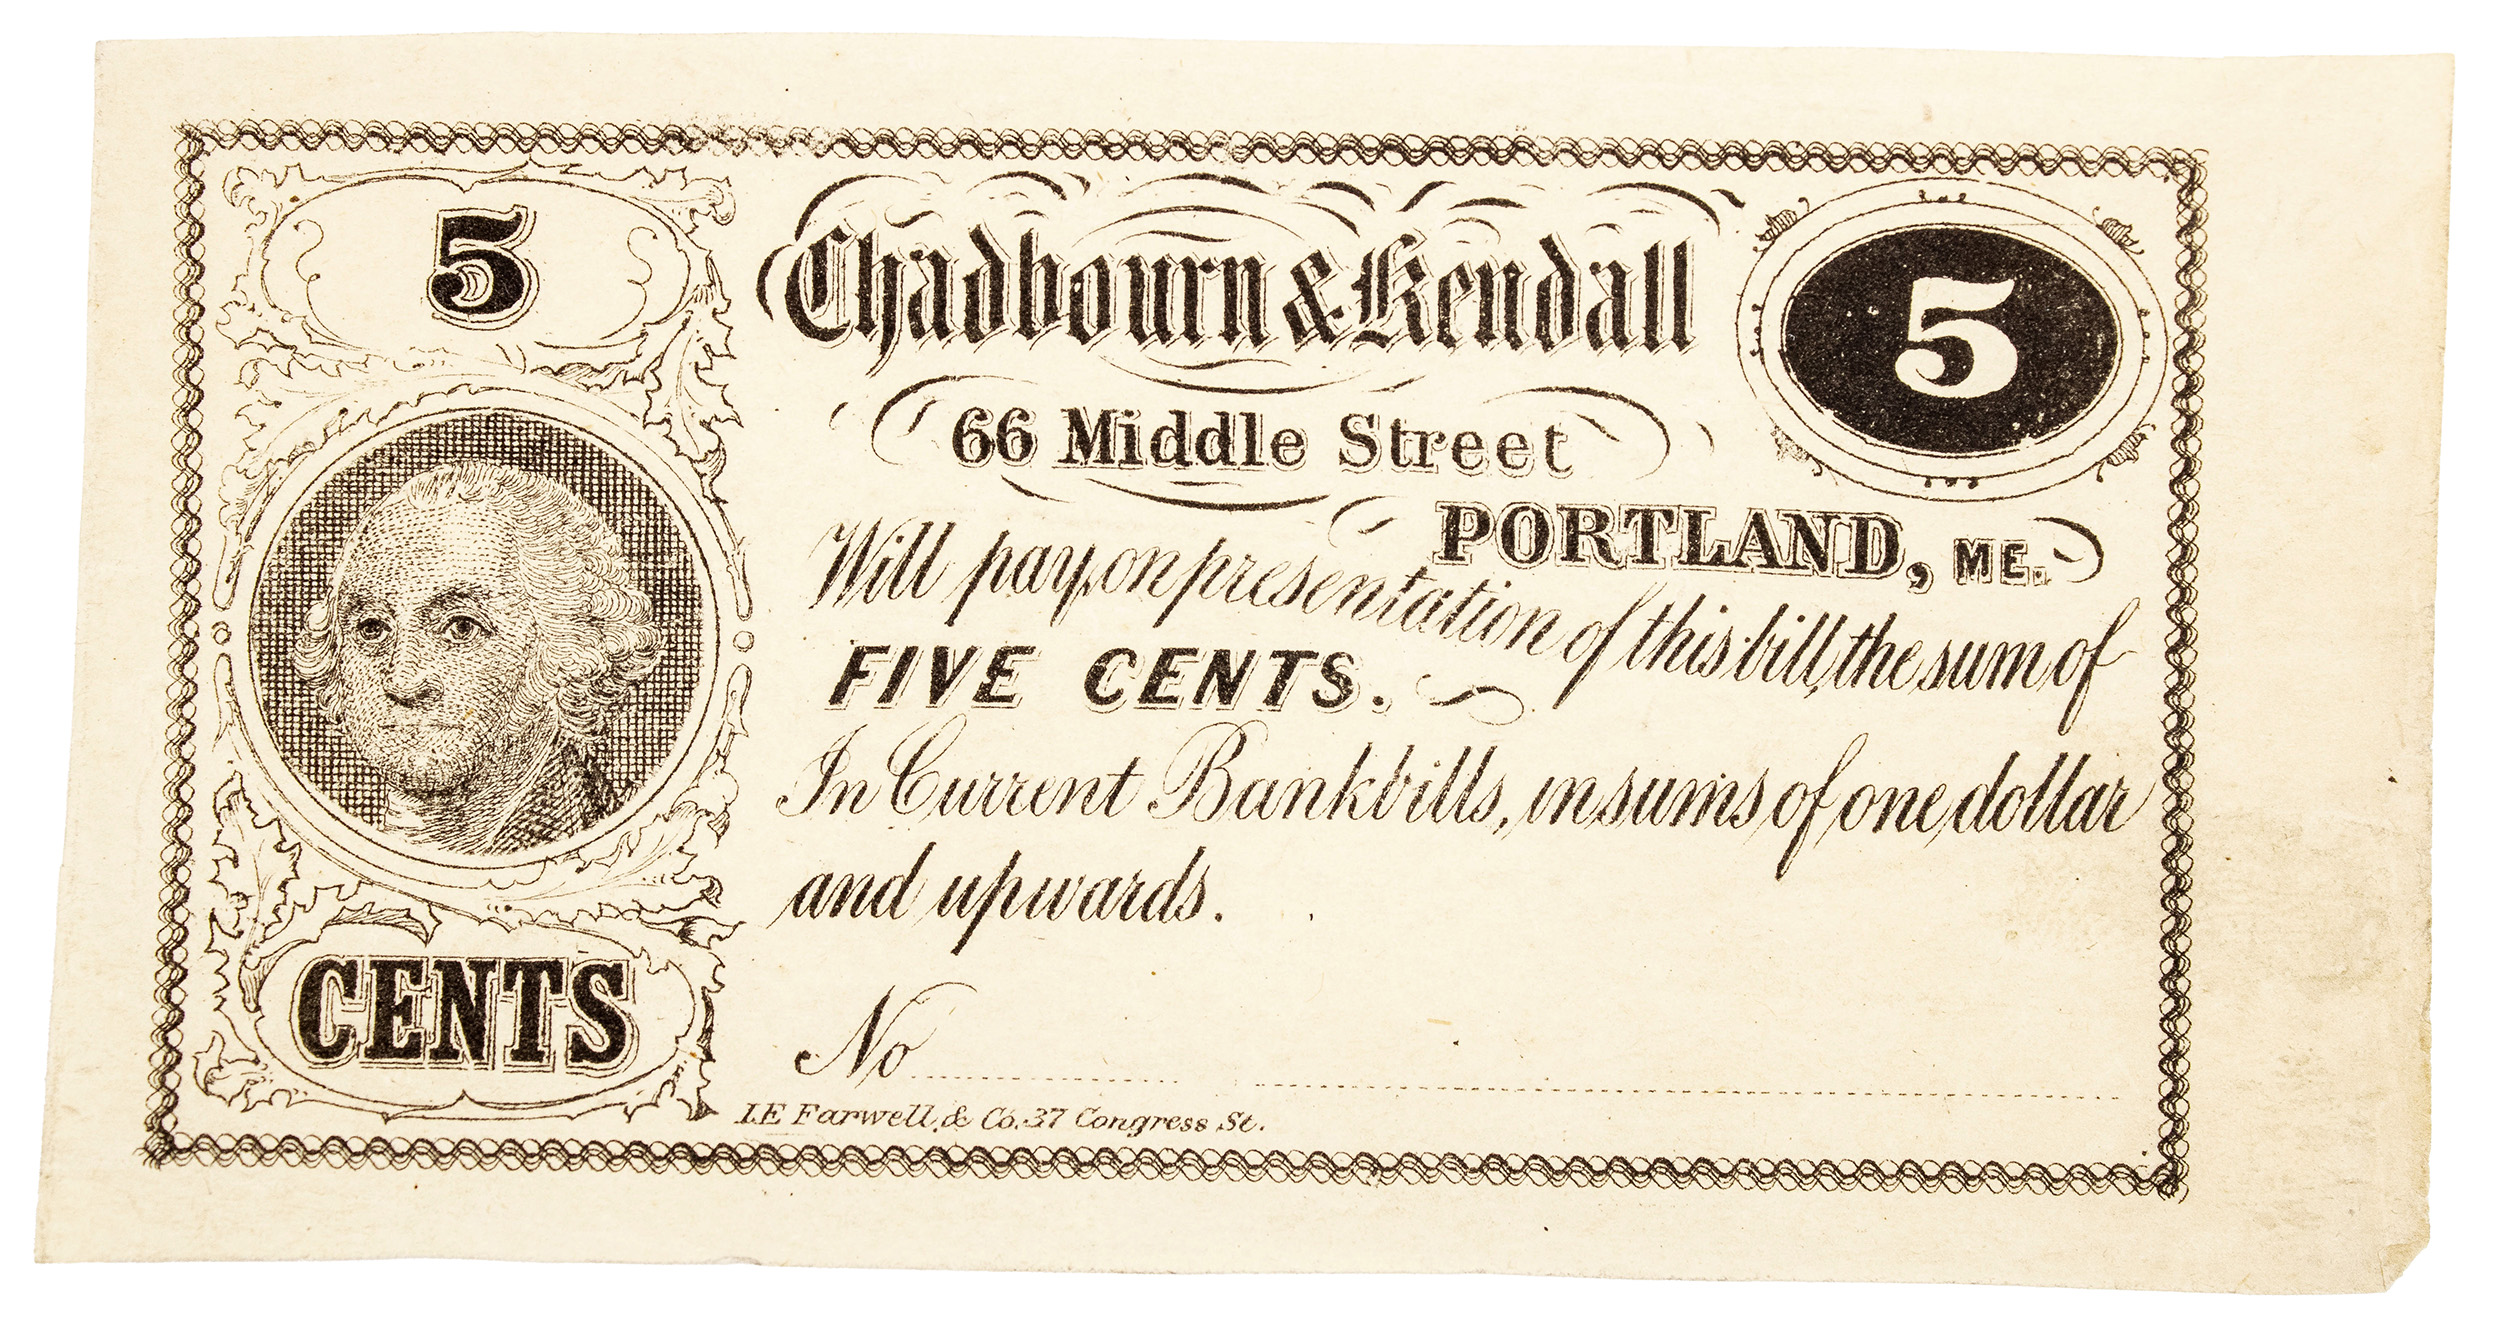 5
Chadbourn & Kendall
5
66 Middle Street
PORTLAND, ME.
Will pay, on presentation of this bill, the sum of
FIVE CENTS.
In Current Bankbills, in sums of one dollar
and upwards.
CENTS
No
J.E Farwell, & Co. 37 Congress St.